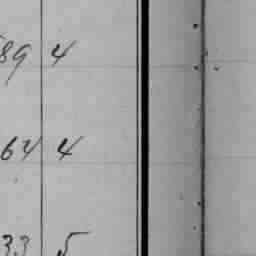 89 4
64 4
33 5